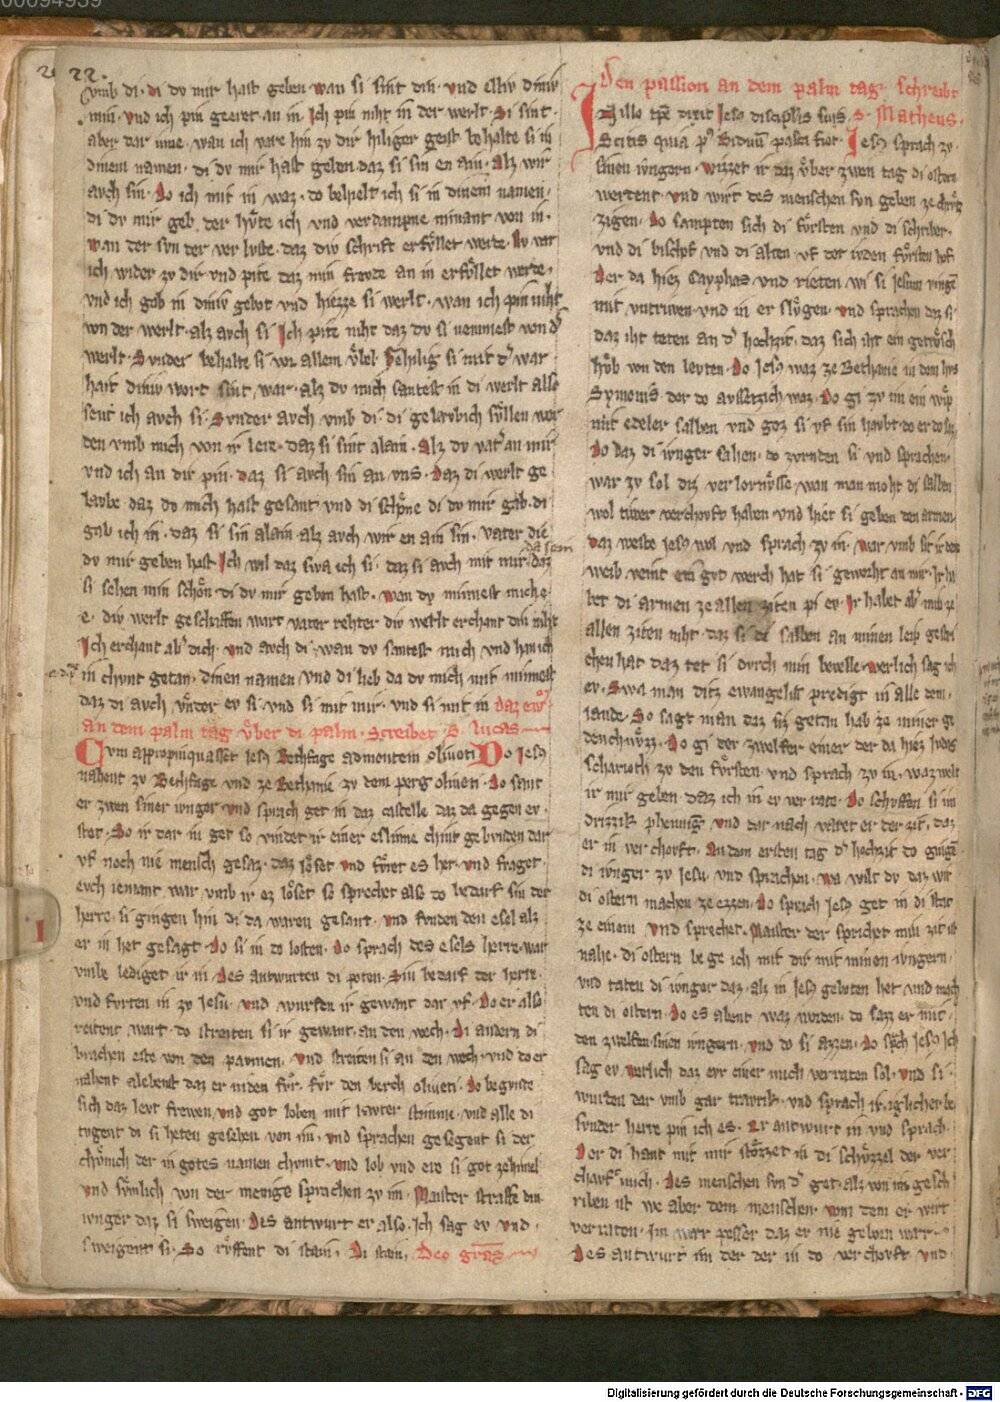 00094939
22.
vmb di. di dv mir hast geben. wan si sint din. vnd elliv diniv
min. vnd ich pin geeret an in. Ich pin niht in der werlt. Si sint.
aber dar inne. wan ich vare hin zv dir hiliger geist behalte si in
dinem namen. di dv mir hast geben. daz si sin en ain. alz wir
avch sin. Do ich mit in waz. do behielt ich si in dinem namen.
di dv mir geb. der hvͦte ich vnd verdampne nimant von in.
wan der svn der ver lvste. daz div schrift erfvͤllet werde. Nv var
ich wider zv dir vnd pite daz min frevde an in erfvͤllet werde.
vnd ich gab in diniv gebot vnd hiezze si werlt. wan ich pin niht
von der werlt. alz avch si. Ich pite niht daz dv si nennnest von dͤ
werlt. Svnder behalte si vor allem vͤbel. hilig si mit dͤ war
hait diniv wort sint war. alz dv mich santest in di werlt also
sent ich avch si. Svnder avch vmb di di gelavbich svͤllen wer
den vmb mich von ir lere. daz si sint alain. Alz dv vatͤ an mir
vnd ich an dir pin. daz si avch sin an vns. Daz di werlt ge
lavbe daz dv mich hast gesant vnd di schoͤne di dv mir gab. di
gab ich in. daz si sin alain alz avch wir en ain sin. vater die
da si sein
dv mir geben hast Ich wil daz swa ich si. daz si avch mit mir. daz
si sehen min schoͤn di dv mir geben hast. wan dv minnest mich e
e. div werlt geschaffen wart vater rehter div werlt erchant din niht
Ich erchant abͤ dich. vnd avch di. wan dv santest mich vnd han ich
in chvnt getan. dinen namen vnd di lieb da dv mich mit minnest
daz di avch vnder ev si. vnd si mit mir. vnd si mit in daz ewͤ
an dem palm tag vͤber di palm. Screibet S. Lucas
Cvm appropinquasset Jesus Bethfage ad montem oliueti Do Jesus
nahent zv Bethfage vnd ze Bethanie zv dem perg oliueti. do sant
er zwen siner ivnger vnd sprach get in daz castelle daz da gegen ev.
stet. So ir dar in get so vindet ir einer eslinne chint gebvnden dar
vf noch nie mensch gesaz. daz loͤset vnd fvͤret es her. vnd fraget.
evch iemant war vmb ir ez loͤset so sprechet also do bedarf sin der
herre. si giengen hin di da waren gesant. vnd fvnden den esel alz
er in het gesagt. Do si in do losten. do sprach des esels herre. war
vmbe lediget ir in. des antwurten di poten. Sin bedarf der herre.
vnd fvrten in zv Jesu. vnd wurfen ir gewant dar vf. Do er also
reitent wart. do streiten si ir gewant. an den wech. Di andern di
brachen este von den pavmen. vnd streiten si an den wech. vnd do er
nahent alebent daz er niden fvͤr. fvͤr den berch oliueti. do begvnde
sich daz levt frewen. vnd got loben mit lavter stimme. vnd alle di
tvgent di si heten gesehen von im. vnd sprachen gesegent si der
chvͤnich der in gotes namen chvmt. vnd lob vnd ere si got ze himel
vnd svͤmlich von der menige sprachen zv im. Maister straffe din
ivnger daz si sweigen. Des antwurt er also. Ich sag ev vnd.
sweigent si. So rvͤffent di stain. Di stain. Deo gratias
Den passion an dem palm tag schreibt
In illo tpͤe dixit Jesus discipulis suis. S. Matheus.
Scitis quia pͦ biduum pasca fiet. Jesus sprach zv
sinen ivngern. wizzet ir daz vͤber zwen tag di ostern
werdent. vnd wirt des menschen svn geben ze chrvͤ
zigen. do sampten sich di fvͤrsten vnd di schriber.
vnd di bischof vnd di alten vf der ivden fvͤrsten hof.
Der da hiez Cayphas vnd rieten wi si Jesum vingen
mit vntriwen. vnd in er slvͤgen. vnd sprachen daz si
daz iht teten an dͤ hochzit. daz sich iht ein getvͤsch
hvͤb von den levten. Do Jesus waz ze Bethanie in dem hvs
Symonis der do avssetzich waz. Do gi zv im ein wip
mit edeler salben vnd goz si vf sin havbt. do er do saz
Do daz di ivnger sahen. do zvrnden si vnd sprachen.
war zv sol diz verlornvͤsse. wan man moht di salben
wol tiwer verchovft haben vnd hiet si geben den armen
Daz weste Jesus wol vnd sprach zv in. War vmb sit ir dem
weib veint ein gvt werch hat si geworht an mir. Ir ha
bet di armen ze allen ziten pi ev. Ir habet abͤ mich ze
allen ziten niht. daz si di salben an minen leip gestri
chen hat daz tet si dvrch min bevelle. werlich sag ich
ev. Swa man ditz ewangelist predigt in alle dem.
lande. So sagt man daz si getan hab ze irner ge
denchnvͤzz. Do gi der zwelfer einer der da hiez Judas
Scharioth zv den fvͤrsten vnd sprach zv in. waz welt
ir mir geben daz ich in ev verrate. Do schvffen si im
drizzik phenning vnd dar nach vatet er der zit. daz
er in verchovft. An dem ersten tag dͤ hochzit do gingen
di ivnger zv Jesu. vnd sprachen. wa wilt dv daz wir
di ostern machen ze ezzen. Do sprach Jesus get in di stat
ze einem vnd sprechet. Maister der sprichet min zit ist
nahe. di ostern bege ich mit dir mit minen ivngern.
vnd taten di ivnger daz. alz in Jesus geboten het vnd mach
ten di ostern. Do es abent waz worden. do saz er mit.
den zwelfen sinen ivngern. vnd do si azzen. do sprach Jesus Ich
sag ev werlich daz evr einer mich verraten sol. vnd si.
wurden dar vmb gar travrik. vnd sprach ir iglicher be
svnder herre pin ich es. Er antwurt in vnd sprach.
Der di hant mit mir stoͤzzet in di schvͤzzel der ver
chavft mich. Des menschen svn dͤ get. alz von im gesch
riben ist we aber dem menschen von dem er wirt
verraten. Im wær pesser daz er nie geborn wær.
Des antwurt im der der in do verchovft. vnd
1
Digitalisierung gefördert durch die Deutsche Forschungsgemeinschaft - DFG